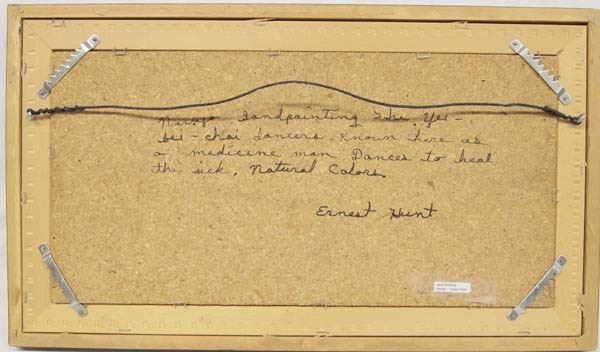 Navajo Sandpainting The Yei-
bei-chai dancers Known here as
a medicine man Dances to heal
the sick, Natural Colors.
Ernest Hunt